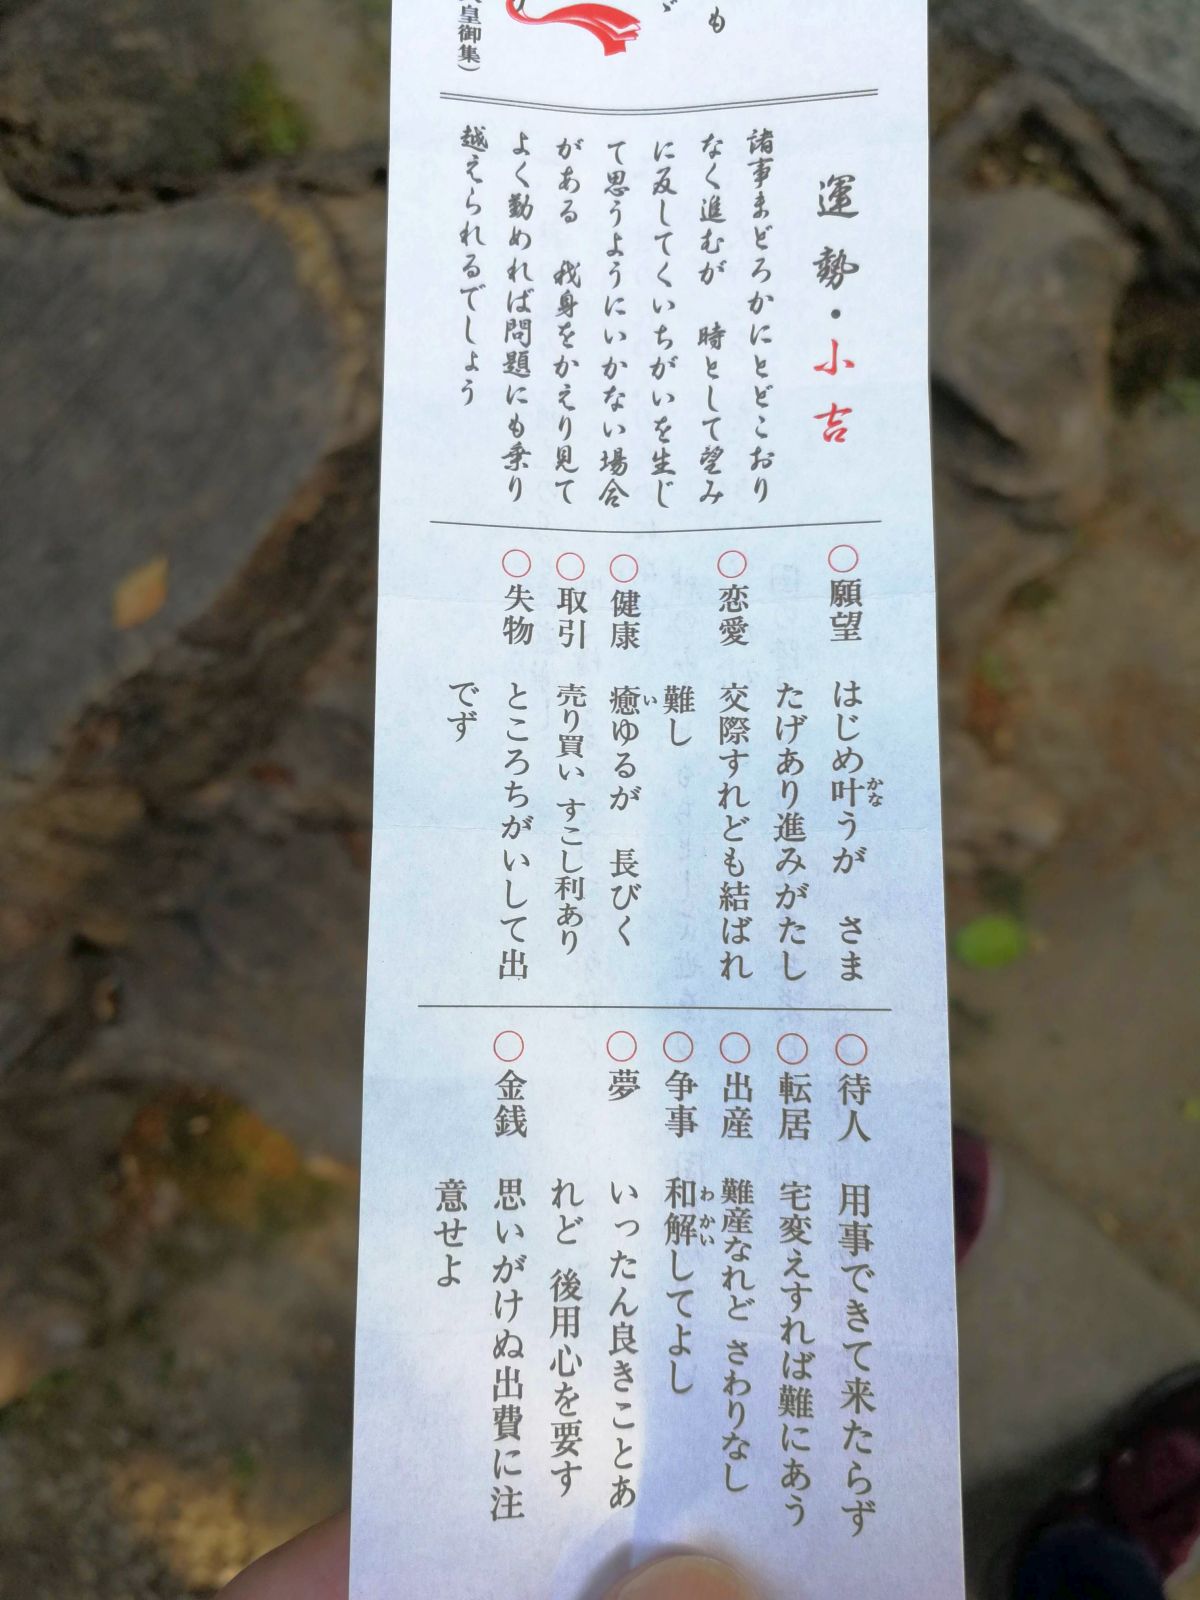 も
皇御集）
運勢・小吉
諸事まどろかにとどこおり
なく進むが　時として望み
に反してくいちがいを生じ
て思うようにいかない場合
がある　我身をかえり見て
よく勤めれば問題にも乗り
越えられるでしょう
○願望　はじめ叶うが　さま
かな
たげあり進みがたし
○恋愛　交際すれども結ばれ
難し
○健康　癒ゆるが　長びく
い
○取引　売り買い すこし利あり
○失物　ところちがいして出
でず
○待人　用事できて来たらず
○転居　宅変えすれば難にあう
○出産　難産なれど さわりなし
○争事　和解してよし
わかい
○夢　いったん良きことあ
れど 後用心を要す
○金銭　思いがけぬ出費に注
意せよ